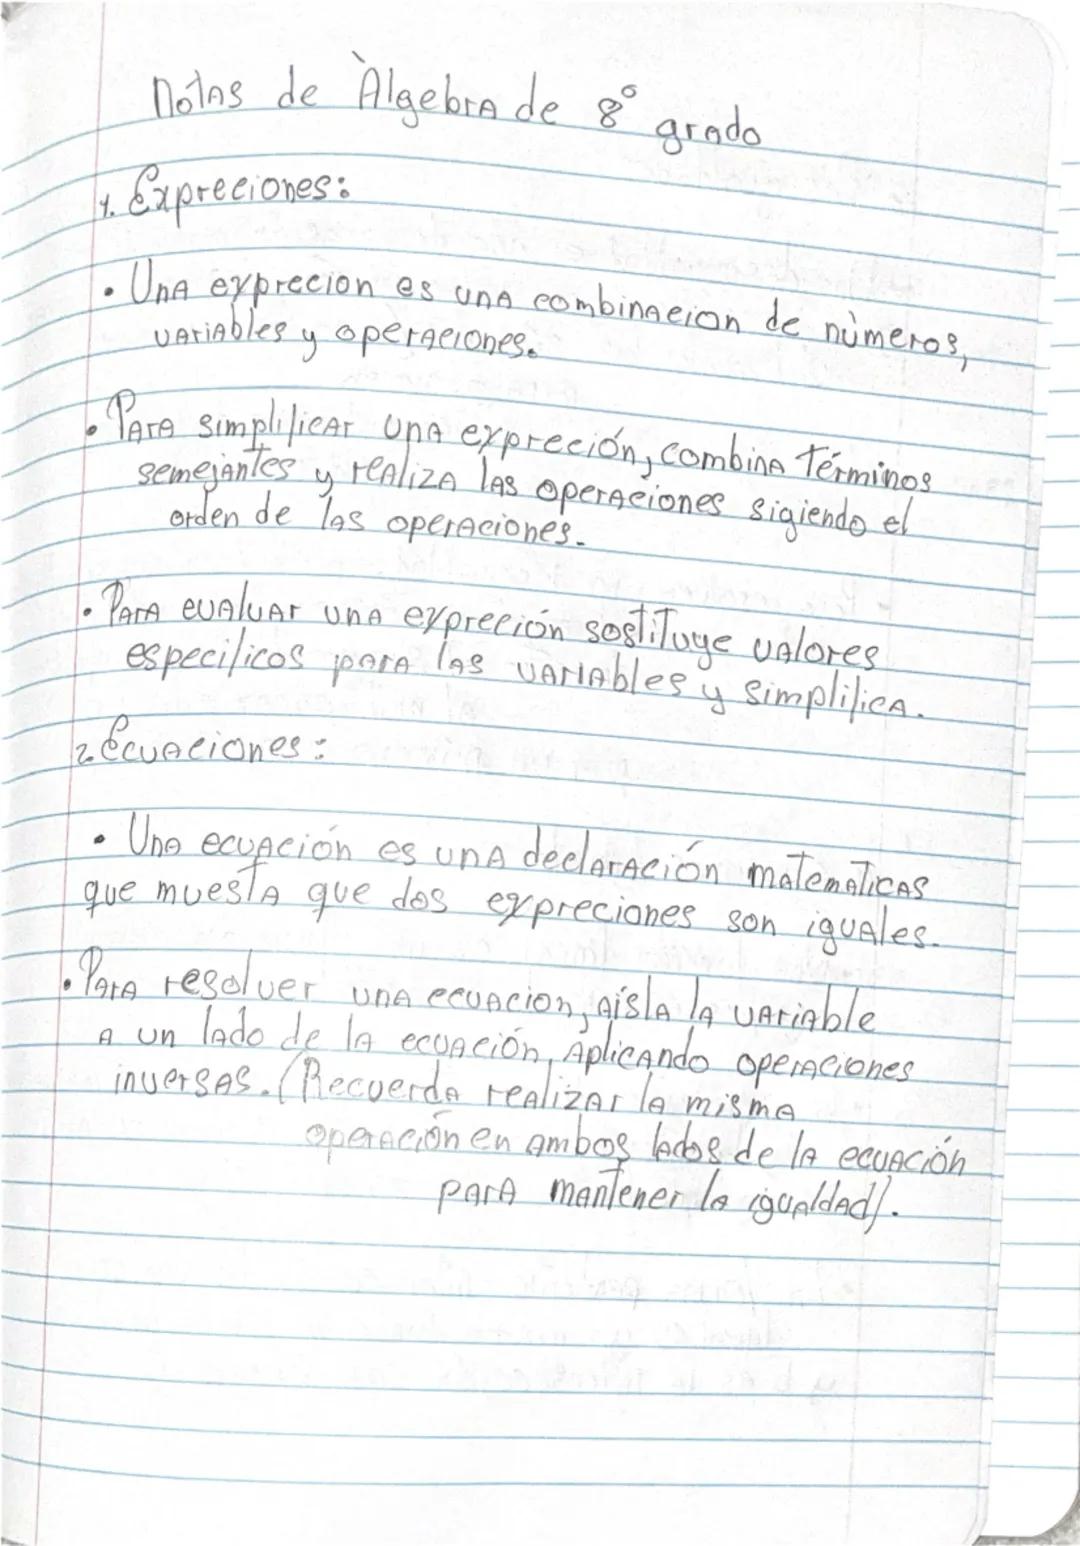 Notas de Àlgebra de 8° grado
1. Expreciones:
• Una exprecion es una combinacion de nùmeros,
variables y operaciones.
• Para simplificar una expreción, combina términos
semejantes y realiza las operaciones sigiendo el
orden de las operaciones.
• Para evaluar una expreción sostituye valores
especificos para las variables y simplifica.
2. Ecuaciones:
• Una ecuación es una declaración matematicas
que muesta que dos expreciones son iguales.
• Para resolver una ecuacion, aísla la variable
a un lado de la ecuación, aplicando operaciones
inversas. (Recuerda realizar la misma
operación en ambos lados de la ecuación
para mantener la igualdad).